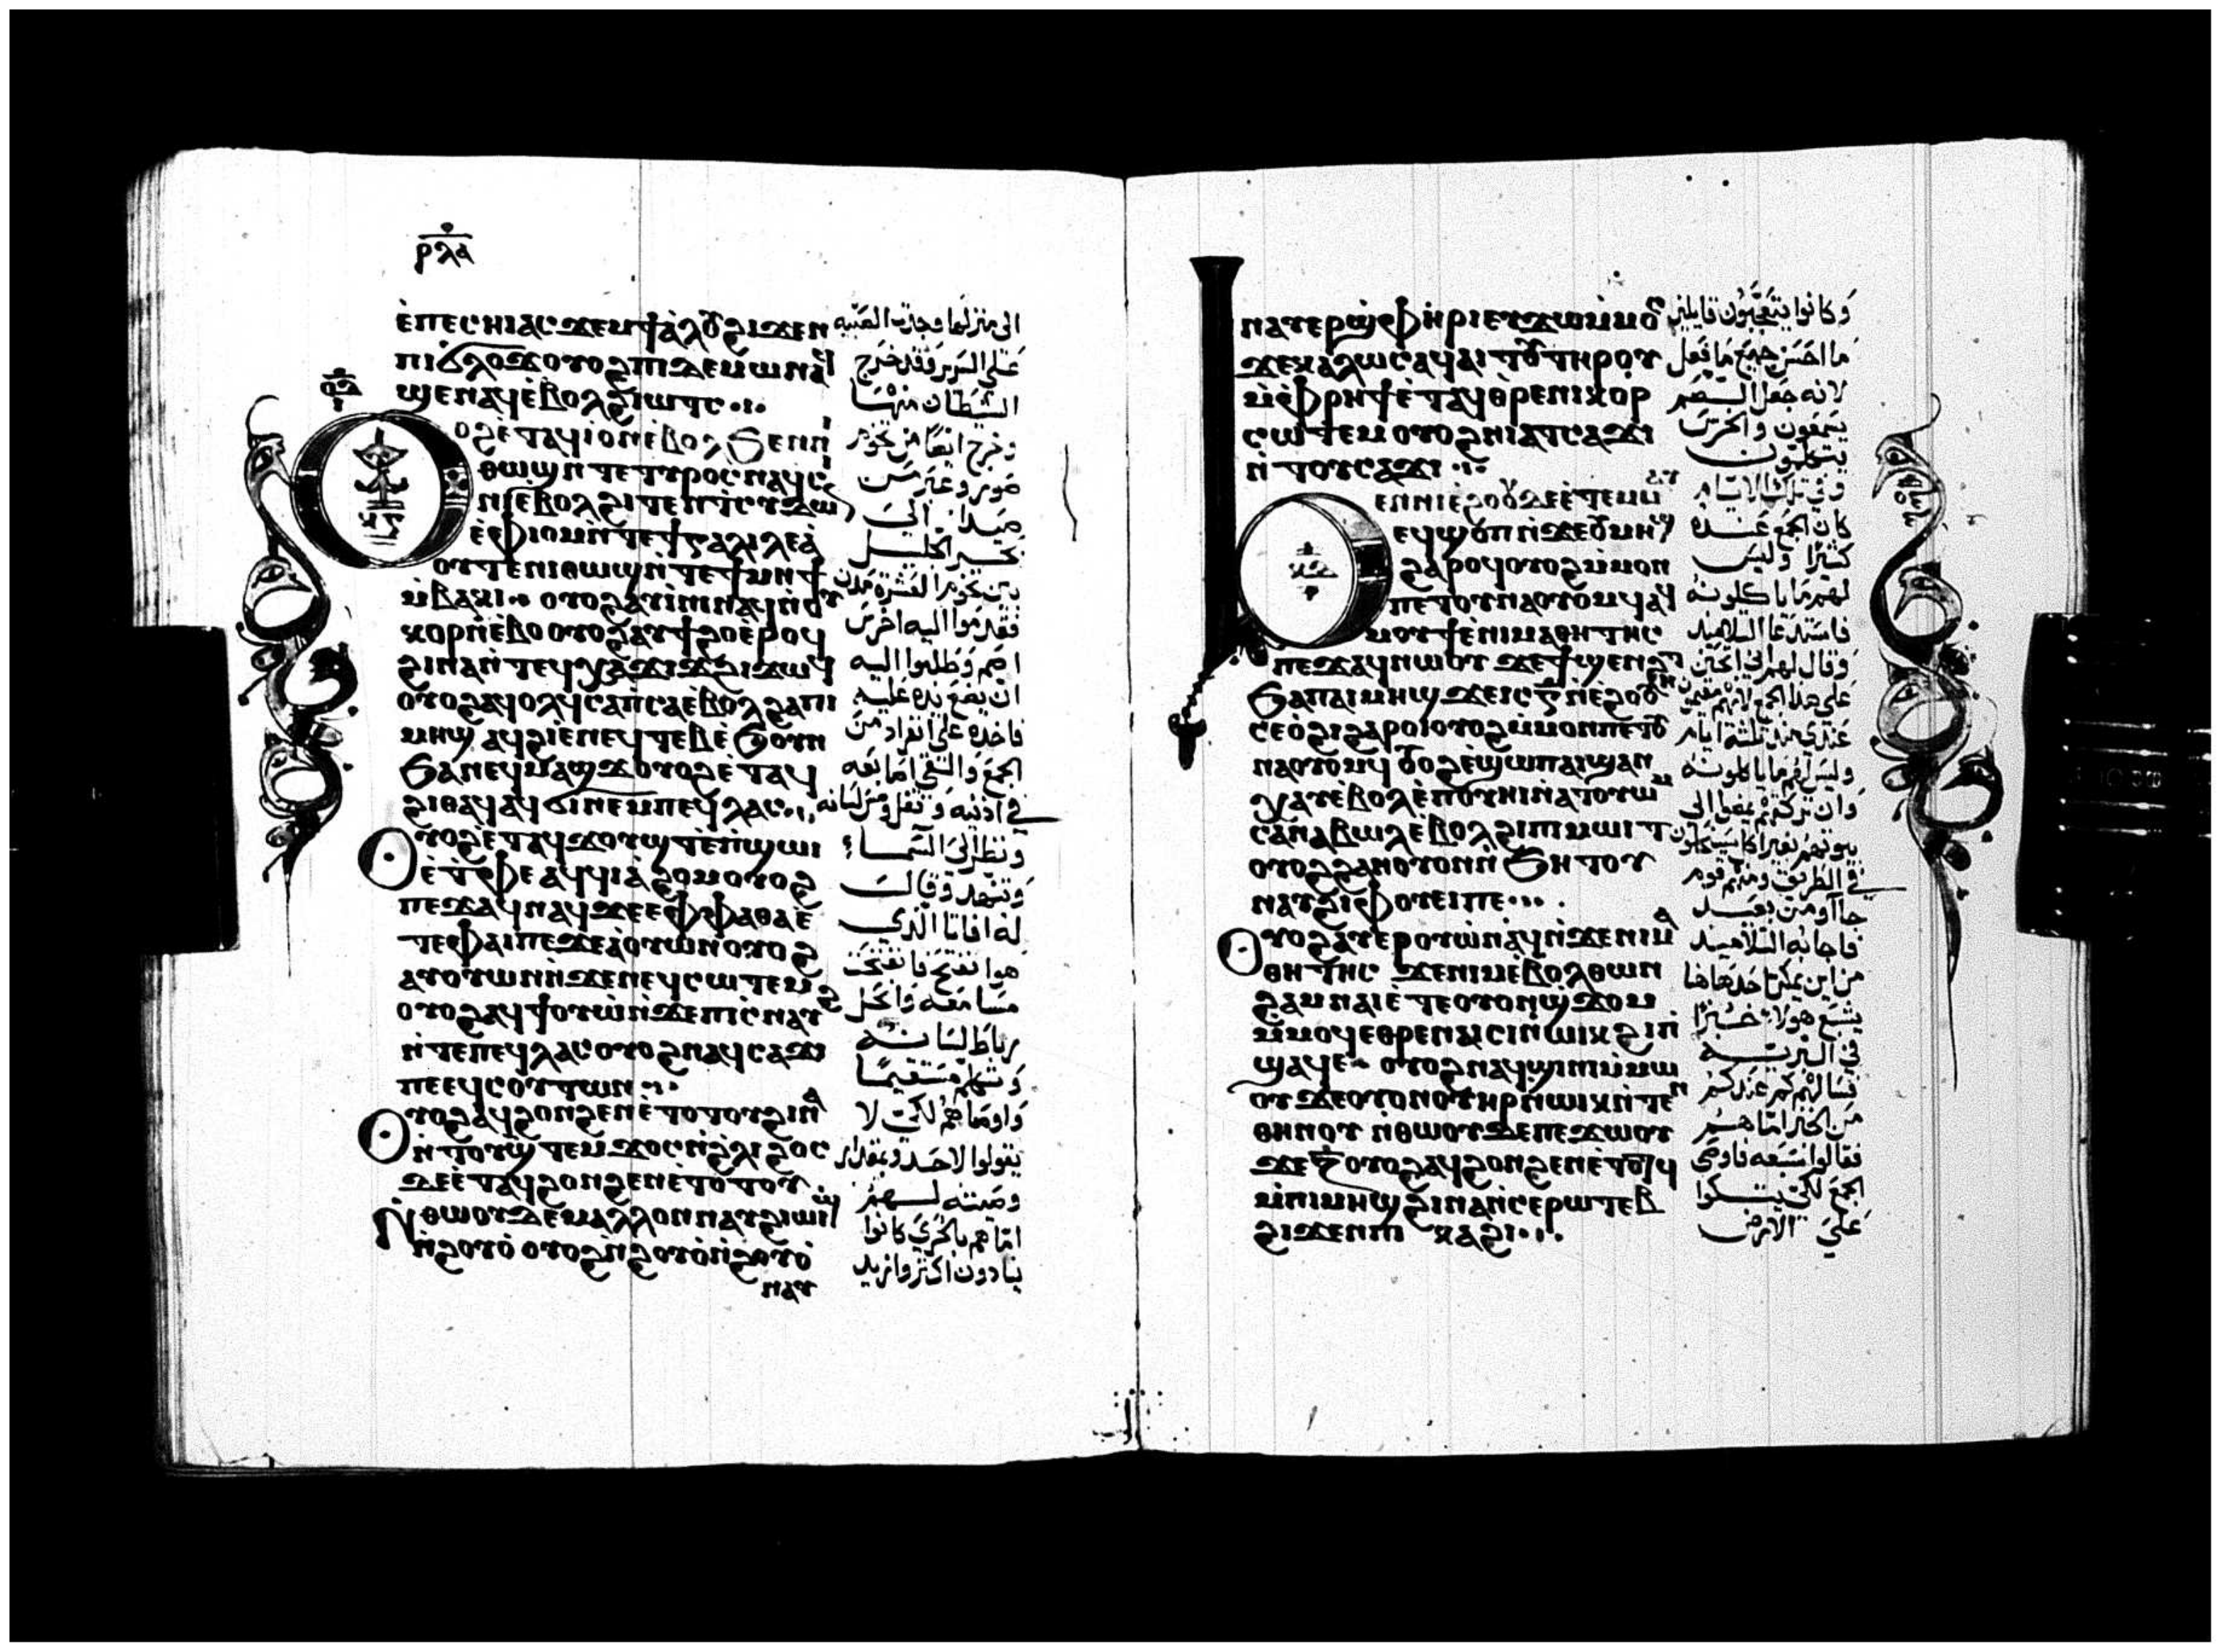 ⲣⲗⲁ
ⲉ̀ⲡⲉⲥⲏⲓⲁⲥϫⲉⲙϯⲁ̀ⲗⲟⲩϩⲓϫⲉⲛ
ⲡⲓϭⲗⲟϫⲟⲩⲟϩⲡⲓⲇⲉⲙⲱⲛ
ϣⲉⲛⲁϥⲉ̀ⲃⲟⲗϩⲓⲱⲧⲥ
ⲟϩⲉⲧⲁϥⲓ̀ⲟⲛⲉ̀ⲃⲟⲗϧⲉⲛⲛⲓ
ⲑⲱϣⲛⲧⲉⲧⲩⲣⲟⲥⲛⲁϥⲥ
ⲛⲉ̀ⲃⲟⲗϩⲓⲧⲉⲛⲧⲥⲓⲇⲱ
ⲉ̀ⲫⲓⲟⲙⲛ̀ⲧⲉϯⲅⲁⲗⲓⲗⲉⲁ̀
ⲟⲩⲧⲉⲛⲓⲑⲱϣⲛ̀ⲧⲉϯⲙⲏϯ
ⲙ̀ⲃⲁⲕⲓ ⲟⲩⲟϩⲁⲩⲓ̀ⲛⲓⲛⲁϥⲛ̀ⲟⲩ
ⲕⲟⲩⲣⲛ̀ⲉ̀ⲃⲟⲟⲩⲟϩⲁⲩϯϩⲟⲉ̀ⲣⲟϥ
ϩⲓⲛⲁⲛ̀ⲧⲉϥⲭⲁϫⲓϫϩⲓϫⲱϥ
ⲟⲩⲟϩⲁϥⲟⲗϥⲥⲁⲡ̀ⲥⲁⲉ̀ⲃⲟⲗϩⲁⲡⲓ
ⲙⲏϣ ⲁϥϩⲓⲉ̀ⲛⲉϥⲧⲉⲃⲉ̀ϧⲟⲩⲛ
ϧⲉⲛⲉϥⲙⲁϣϫⲟⲩⲟϩⲉ̀ⲧⲁϥ
ϩⲓⲑⲁϥⲁϥϭⲓⲛⲉⲙⲡⲉϥⲗⲁⲥ
ⲟⲩⲟϩⲉ̀ⲧⲁϥϫⲟⲩϣⲧⲉ̀ⲡ̀ϣⲱⲓ
ⲉ̀ⲧ̀ⲫⲉⲁϥϥⲓⲁ̀ϩⲟⲙⲟⲩⲟϩ
ⲡⲉϫⲁϥⲛⲁϥϫⲉⲉⲫⲫⲁⲑⲁⲉ̀
ⲧⲉⲫⲁⲓⲡⲉϫⲉⲁ̀ⲟⲩⲱⲛⲟⲩⲟϩ
ⲁⲩⲟⲩⲱⲛⲛ̀ϫⲉⲛⲉϥⲥⲱⲧⲉⲙ
ⲟⲩⲟϩⲁϥϯⲟⲩⲱ̀ⲛ̀ϫⲉⲡⲓⲥ̀ⲛⲁⲩ
ⲛ̀ⲧⲉⲡⲉϥⲗⲁⲥⲟⲩⲟϩⲛⲁϥⲥⲁϫⲓ
ⲡⲉⲉϥⲥⲟⲩⲧⲱⲛ
ⲟⲩⲟϩⲁϥϩⲟⲛϩⲉⲛⲉ̀ⲧⲟⲧⲟⲩϩⲓⲛⲁ
ⲛ̀ⲧⲟⲩϣ̀ⲧⲉⲙϫⲟⲥⲛ̀ϩⲗⲓϩⲟⲥ
ⲇⲉⲉ̀ⲧⲁϥϩⲟⲛϩⲉⲛⲉ̀ⲧⲟⲧⲟⲩ
ⲛ̀ⲑⲱⲟⲩⲇⲉⲙⲁⲗⲗⲟⲛⲛⲁⲩϩⲓⲱⲓϣ
ⲛ̀ϩⲟⲩⲟ̀ ⲟⲩⲟϩⲛ̀ϩⲟⲩⲟ̀ⲛ̀ϩⲟⲩⲟ̀
ⲛⲁⲩ
الى منزلها وجدت الصبيه
على السرير وقد خرج
الشيطان منها
وخرج ايضا من تخوم
صور وعبر من
صيدا الى
بحر الجليل
بين تخوم العشره مدن
فقدموا اليه اخرس
اصم وطلبوا اليه
ان يضع يده عليه
فاخذه على انفراد من
الجمع والقى اصابعه
في اذنيه وتفل ومس لسانه
ونظر الى السماء
وتنهد وقال
له افاتا الذي
هو انفتح فانفتحت
مسامعه وانحل
رباط لسانه
وتكلم مستقيما
واوصاهم لكي لا
يقولوا لاحد وبمقدار
وصيته لهم
اماهم بالحري كانوا
ينادون اكثر وازيد
ⲛⲁⲩⲉⲣϣ̀ⲫⲏⲣⲓⲉⲩϫⲱⲙ̀ⲙⲟⲥ
ϫⲉⲕⲁⲗⲱⲥⲁϥⲁⲓⲧⲟⲩⲧⲏⲣⲟⲩ
ⲙ̀ⲫⲣⲏϯⲉ̀ⲧⲁϥⲑⲣⲉⲛⲓⲕⲟⲩⲣ
ⲥⲱⲧⲉⲙ ⲟⲩⲟϩⲛⲓⲁⲧⲥⲁϫⲓ
ⲛ̀ⲧⲟⲩⲥⲁϫⲓ
ⲉⲛⲛⲓⲉ̀ϩⲟⲟⲩⲇⲉⲉ̀ⲧⲉⲙⲙ
ⲉϥϣⲟⲡⲛ̀ϫⲉⲟⲩⲙⲏϣ
ϩⲁⲣⲟϥⲟⲩⲟϩⲙ̀ⲙⲟⲛ
ⲡⲉⲧⲟⲩⲛⲁⲟⲩⲟⲙϥⲁϥ
ⲙⲟⲩϯⲉ̀ⲛⲓⲙⲁⲑⲏⲧⲏⲥ
ⲡⲉϫⲁϥⲛⲱⲟⲩ ϫⲉϯϣⲉⲛϩⲏⲧ
ϧⲁⲡⲁⲓⲙⲏϣ ϫⲉⲓⲥⲅ̅ⲛ̀ⲉ̀ϩⲟⲟⲩ
ⲥⲉⲟ̀ϩⲓϩⲁⲣⲟⲓⲟⲩⲟϩⲙ̀ⲙⲟⲛⲡⲉⲧⲟⲩ
ⲛⲁⲟⲩⲟⲙϥ ⲟⲩⲟϩⲉ̀ϣⲱⲡⲁⲓϣⲁⲛ
ⲭⲁⲩⲉ̀ⲃⲟⲗⲉ̀ⲡⲟⲩⲏⲓⲛ̀ⲁⲧⲟⲩⲱⲙ
ⲥⲁⲛⲁⲃⲱⲗⲉ̀ⲃⲟⲗϩⲓⲡⲓⲙⲱⲓⲧ
ⲟⲩⲟϩϩⲁⲛⲟⲩⲟⲛⲛ̀ϧⲏⲧⲟⲩ
ⲛⲁⲩϩⲓⲫⲟⲩⲉⲓⲡⲉ
ⲟⲩⲟϩⲁⲩⲉⲣⲟⲩⲱ̀ⲛⲁϥⲛ̀ϫⲉⲛⲓⲙⲁ
ⲑⲏⲧⲏⲥ ϫⲉⲛⲓⲙⲉ̀ⲃⲟⲗⲑⲱⲛ
ϩⲁⲙⲛⲁⲓⲉ̀ⲧⲉⲟⲩⲟⲛϣ̀ϫⲟⲙ
ⲙ̀ⲙⲟϥⲉⲑⲣⲉⲛⲁⲓⲥⲓⲛⲱⲓⲕϩⲓⲡ̀
ϣⲁϥⲉ ⲟⲩⲟϩⲛⲁϥϣⲓⲛⲓⲙ̀ⲙⲱ
ⲟⲩϫⲉⲟⲩⲟⲛⲟⲩⲏⲣⲛ̀ⲱⲓⲕⲛ̀ⲧⲉⲛ
ⲑⲏⲛⲟⲩ ⲛ̀ⲑⲱⲟⲩⲇⲉⲡⲉϫⲱⲟⲩ
ϫⲉⲍ̅ⲟⲩⲟϩⲁϥϩⲟⲛϩⲉⲛⲉ̀ⲧⲟⲧϥ
ⲙ̀ⲡⲓⲙⲏϣϩⲓⲛⲁⲛ̀ⲥⲉⲣⲱⲧⲉⲃ
ϩⲓϫⲉⲛⲡⲓ ⲕⲁϩⲓ
وكانوا يتعجبون قايلين
ما احسن جميع ما يفعل
لانه جعل الصم
يسمعون والخرس
يتكلمون
وفي تلك الايام
كان الجمع عنده
كثيرا وليس
لهم ما ياكلونه
فاستدعا التلاميذ
وقال لهم اني اتحنن
على هذا الجمع لانهم مقيمين
عندي منذ ثلثة ايام
وليس لهم ما ياكلونه
وان تركتهم يمضوا الى
بيوتهم بغير اكل سيكلون
في الطريق ومنهم قوم
جاآوا من بعيد
فاجابه التلاميذ
من اين يمكن احد هاهنا
يشبع هولاء خبزا
في البريه
فسالهم كم عندكم
من الخبز اما هم
فقالوا سبعه فاوصى
الجمع لكي يتكوا
على الارض